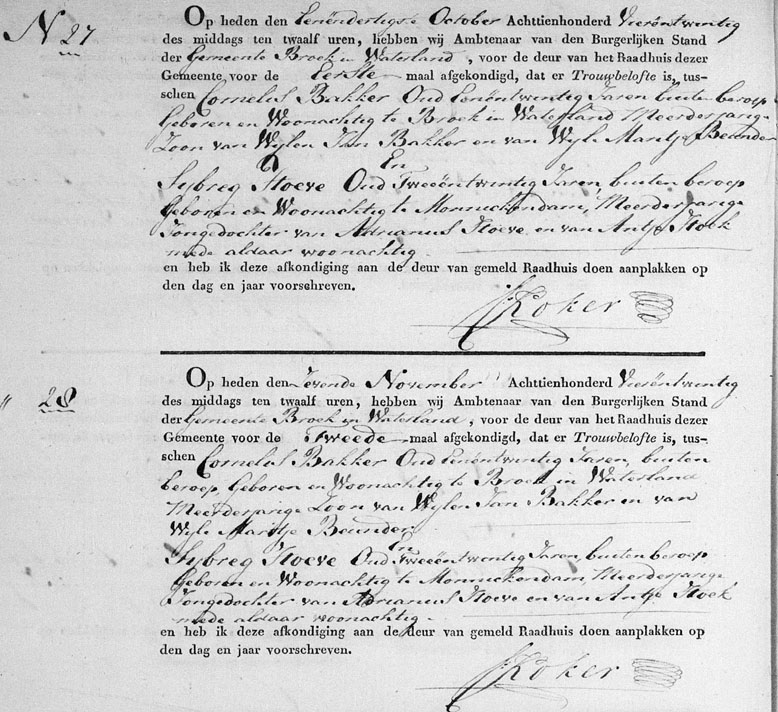 N 27
Op heden den Eenëndertigste October Achttienhonderd Vierëntwintig
des middags ten twaalf uren, hebben wij Ambtenaar van den Burgerlijken Stand
der Gemeente Broek in Waterland, voor de deur van het Raadhuis dezer
Gemeente voor de Eerste maal afgekondigd, dat er Trouwbelofte is, tus-
schen Cornelus Bakker Oud Eenëntwintig Jaren buiten beroep
Geboren en Woonachtig te Broek in Waterland Meerderjarige
Zoon van Wylen Jan Bakker en van Wyle Maritje Beunder
En
Sybreg Hoeve Oud Tweeëntwintig Jaren, buiten beroep
Geboren en Woonachtig te Monnickendam, Meerderjarige
Jongedochter van Adrianus Hoeve, en van Antje Hoek
mede aldaar woonachtig.
en heb ik deze afkondiging aan de deur van gemeld Raadhuis doen aanplakken op
den dag en jaar voorschreven.
Koker
" 28
Op heden den Zevende November Achttienhonderd Vierëntwintig
des middags ten twaalf uren, hebben wij Ambtenaar van den Burgerlijken Stand
der Gemeente Broek in Waterland, voor de deur van het Raadhuis dezer
Gemeente voor de Tweede maal afgekondigd, dat er Trouwbelofte is, tus-
schen Cornelus Bakker Oud Eenëntwintig Jaren, buiten
beroep, Geboren en Woonachtig te Broek in Waterland
Meerderjarige Zoon van Wylen Jan Bakker en van
Wyle Maritje Beunder
En
Sybreg Hoeve Oud Tweeëntwintig Jaren, buiten beroep
Geboren en Woonachtig te Monnickendam, Meerderjarige
Jongedochter van Adrianus Hoeve en van Antje Hoek
mede aldaar woonachtig.
en heb ik deze afkondiging aan de deur van gemeld Raadhuis doen aanplakken op
den dag en jaar voorschreven.
Koker